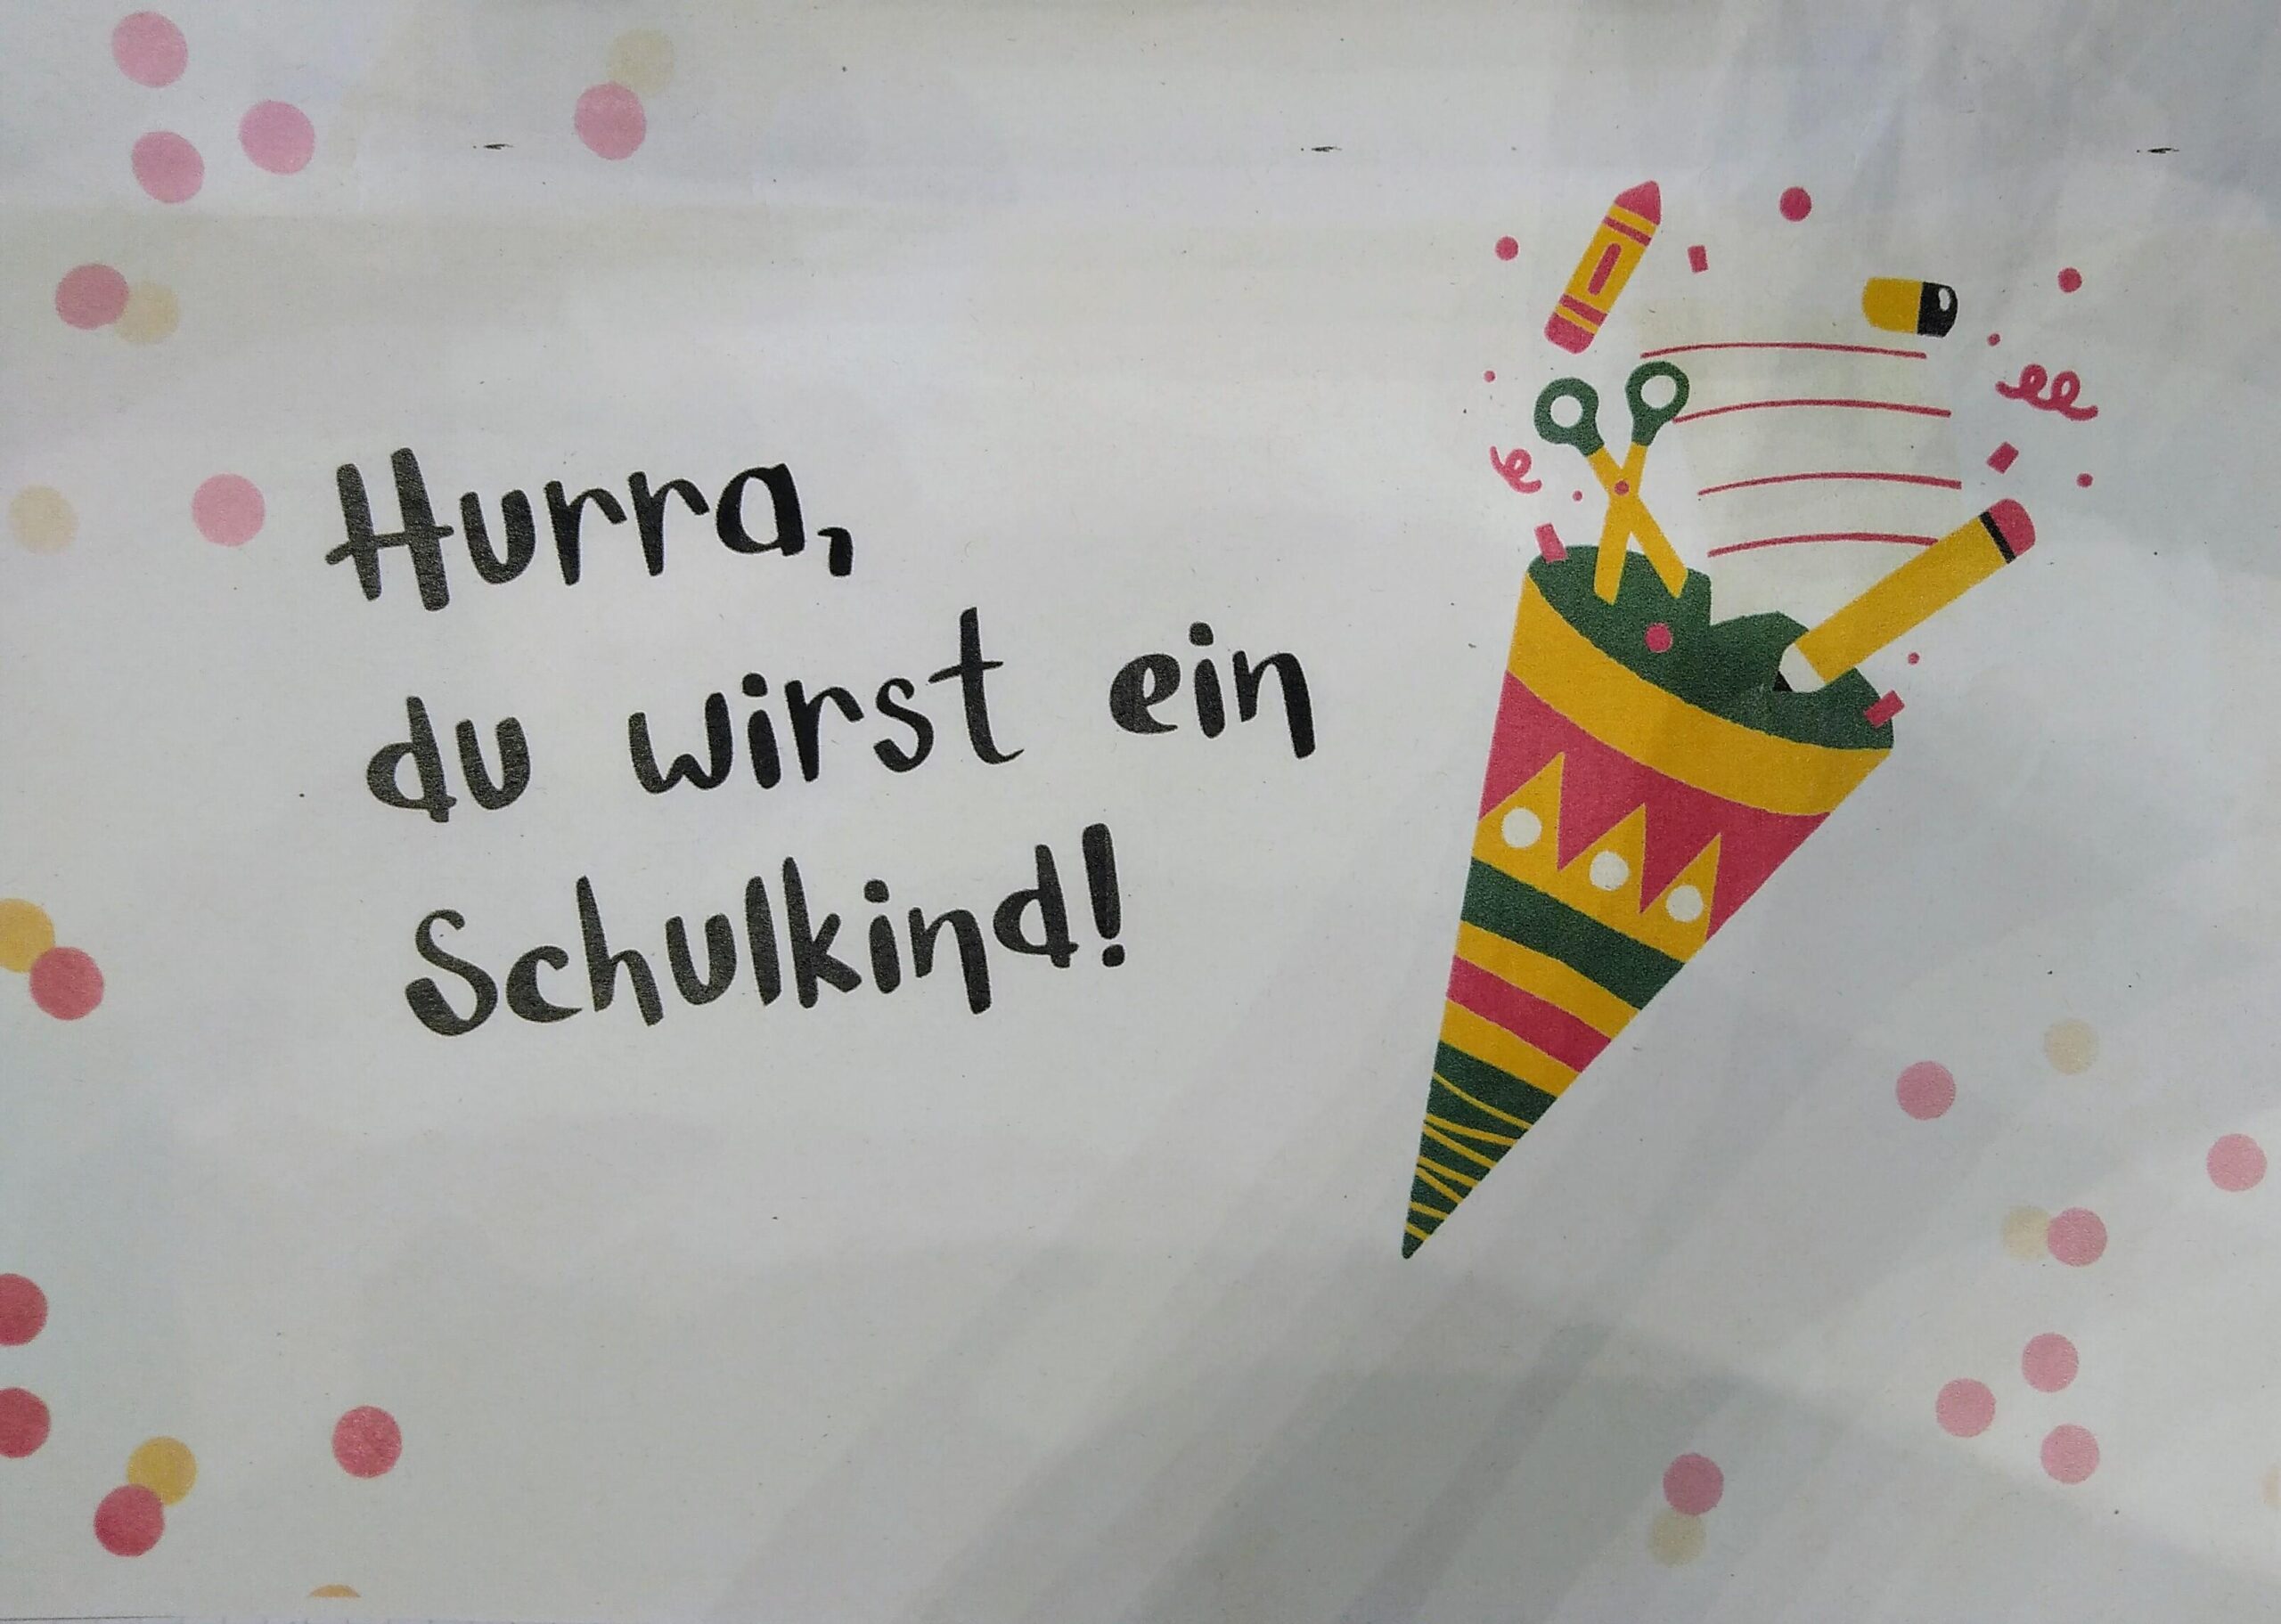 Hurra,
du wirst ein
Schulkind!